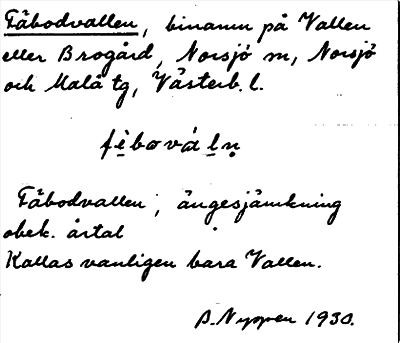 Fäbodvallen, binamn på Vallen
eller Brogård, Norsjö sn, Norsjö
och Malå tg, Västerb. l.
fìbová ḷṇ
Fäbodvallen, ängesjämkning
obek. årtal
Kallas vanligen bara Vallen.
B. Nyppen 1930.